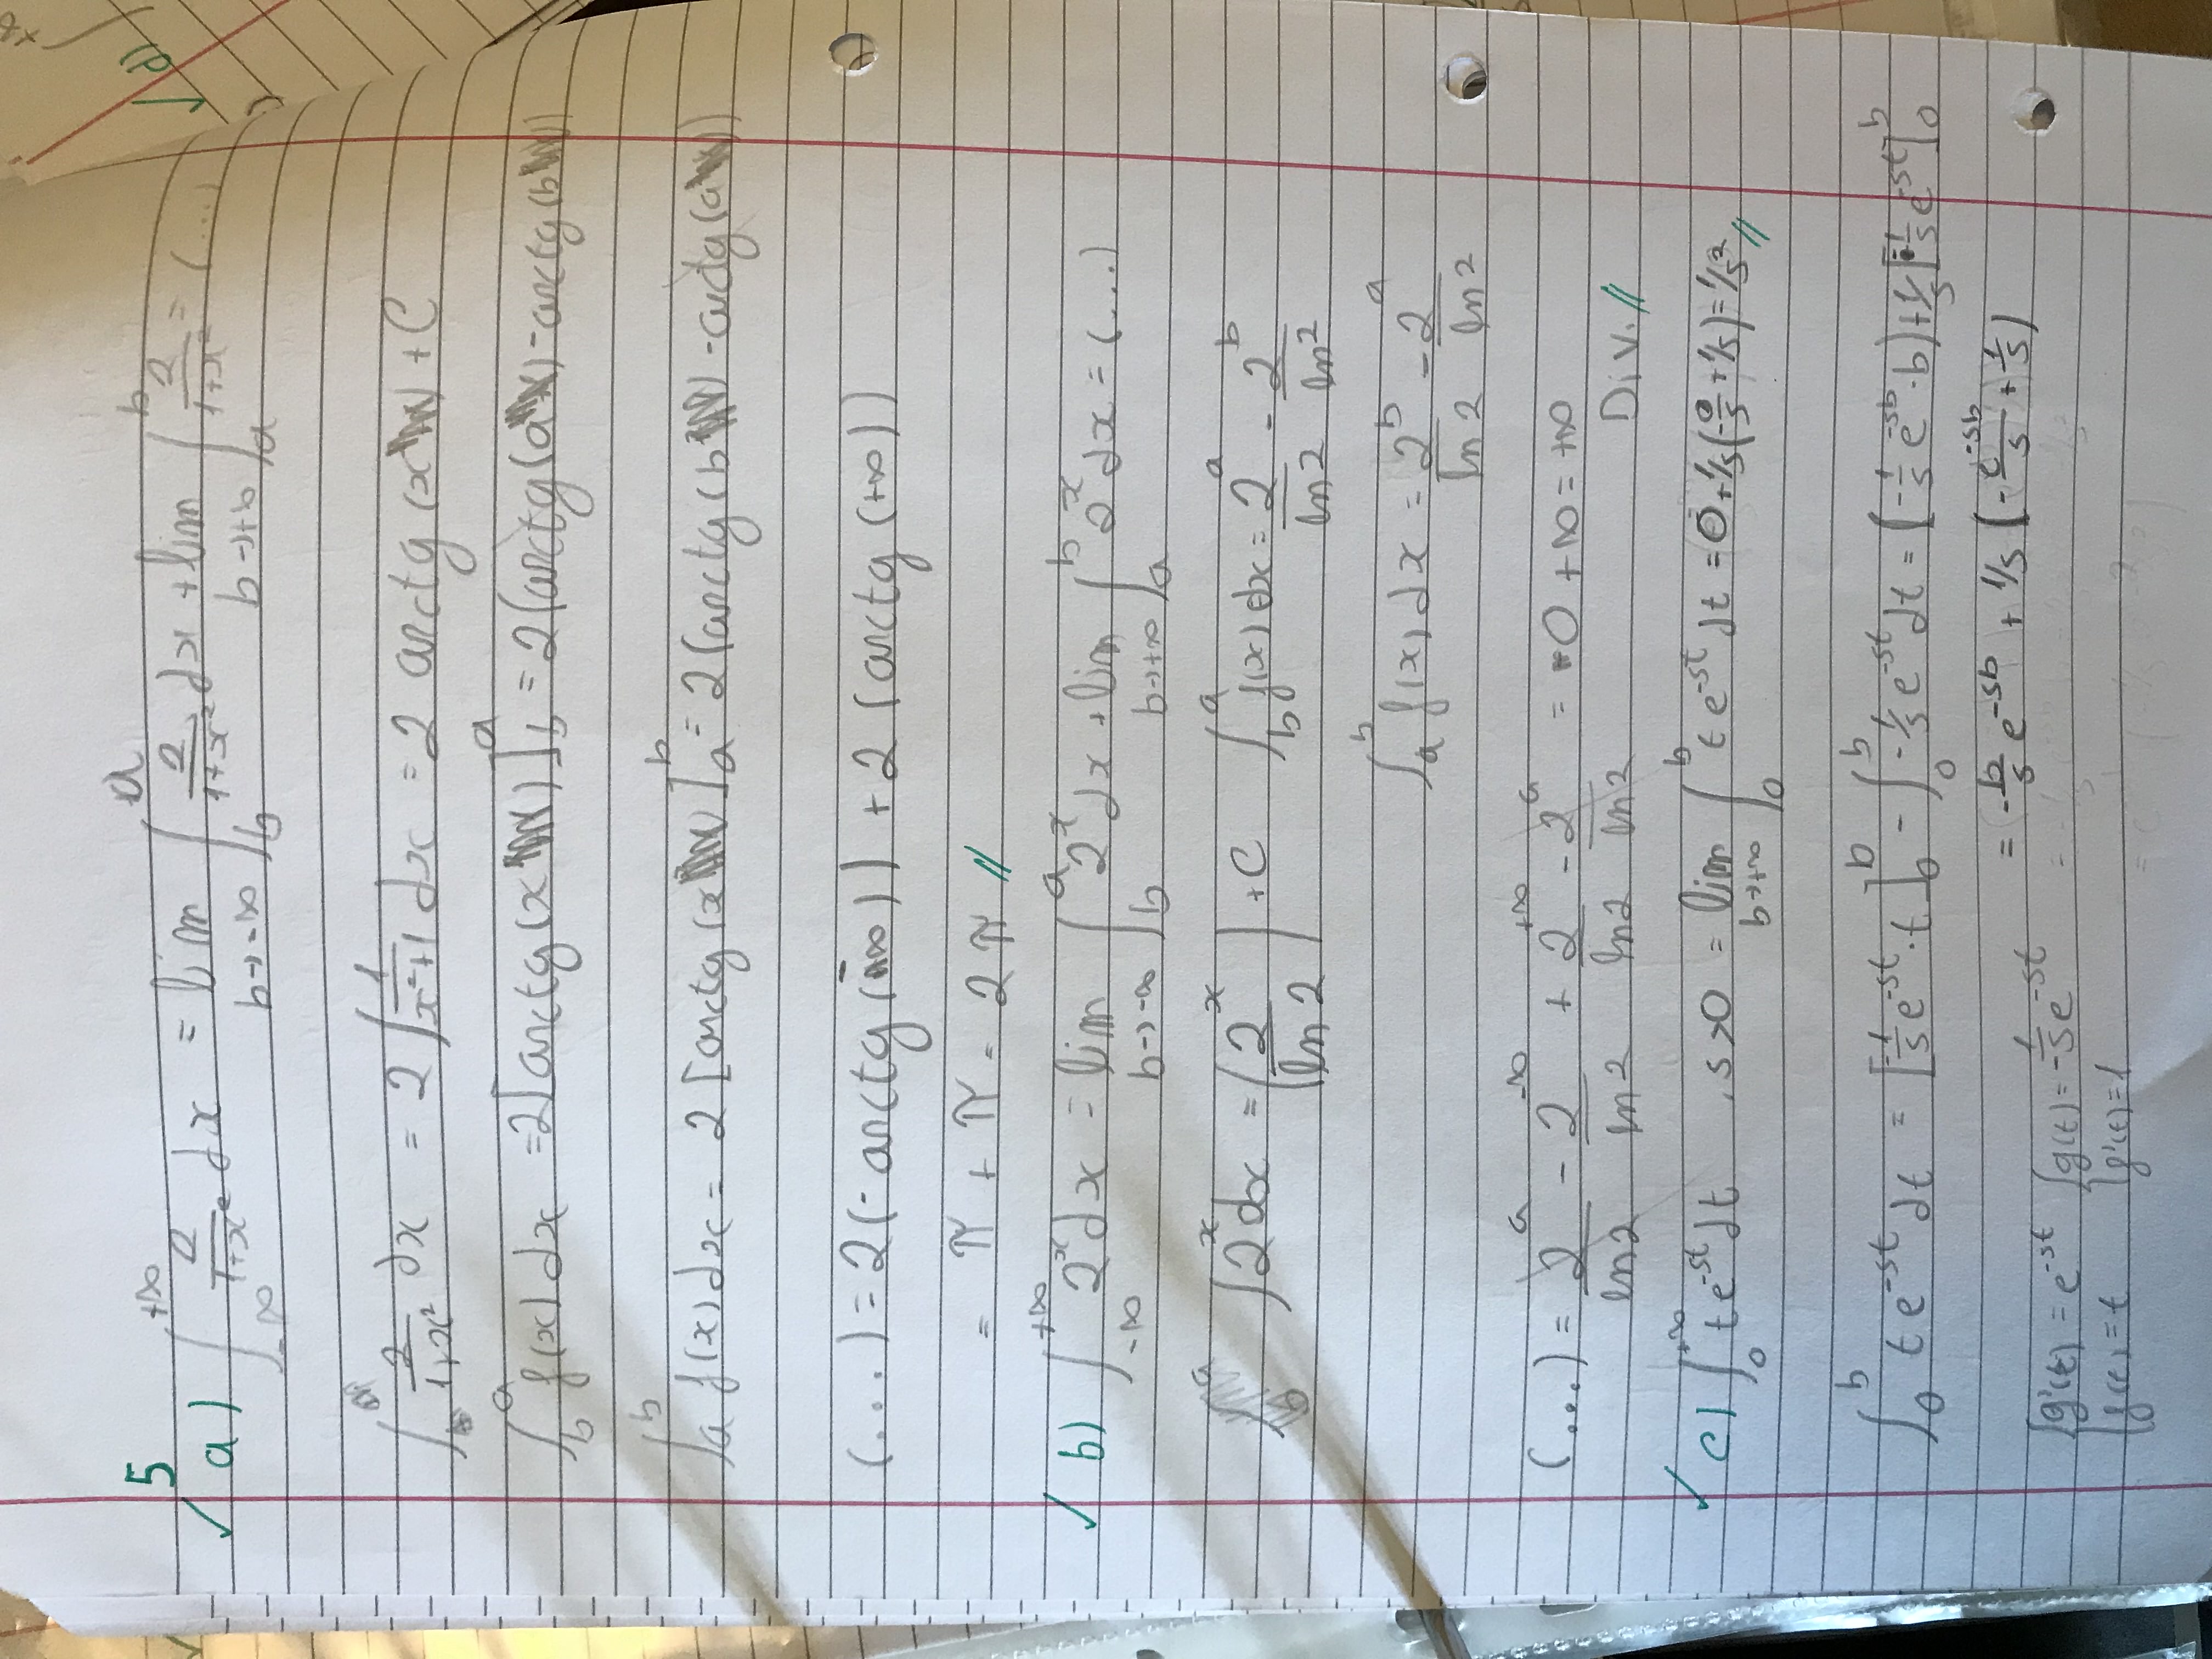 5
a) ∫_{-∞}^{+∞} 2/(1+x²) dx = lim_{b→-∞} ∫_b^a 2/(1+x²) dx + lim_{b→+∞} ∫_a^b 2/(1+x²) = (...)
∫ 2/(1+x²) dx = 2 ∫ 1/(x²+1) dx = 2 arctg (x) + C
∫_b^a f(x) dx = 2[arctg(x)]_b^a = 2(arctg(a) - arctg(b))
∫_a^b f(x) dx = 2 [arctg(x)]_a^b = 2(arctg(b) - arctg(a))
(...) = 2(-arctg(-∞)) + 2 (arctg(+∞))
= π + π = 2π //
b) ∫_{-∞}^{+∞} 2^x dx = lim_{b→-∞} ∫_b^a 2^x dx + lim_{b→+∞} ∫_a^b 2^x dx = (...)
∫ 2^x dx = (2^x/ln 2) + C ∫_b^a f(x) dx = 2^a/ln 2 - 2^b/ln 2
∫_a^b f(x) dx = 2^b/ln 2 - 2^a/ln 2
(...) = 2^a/ln 2 - 2^{-∞}/ln 2 + 2^{+∞}/ln 2 - 2^a/ln 2 = -0 + ∞ = +∞
Div. //
c) ∫_0^{+∞} t e^{-st} dt , s>0 = lim_{b→+∞} ∫_0^b t e^{-st} dt = 0 + 1/s(-0/s + 1/s) = 1/s² //
∫_0^b t e^{-st} dt = [-1/s e^{-st} · t]_0^b - ∫_0^b -1/s e^{-st} dt = (-1/s e^{-sb} · b) + 1/s [-1/s e^{-st}]_0^b
= -b/s e^{-sb} + 1/s (-e^{-sb}/s + 1/s)
g'(t) = e^{-st} g(t) = -1/s e^{-st}
f(t) = t f'(t) = 1